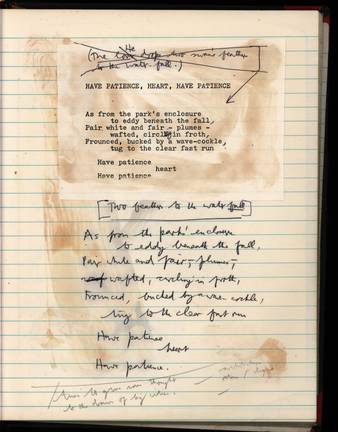 (The He drops two swan's feathers
to the water fall.)
HAVE PATIENCE, HEART, HAVE PATIENCE
As from the park's enclosure
to eddy beneath the fall,
Pair white and fair - plumes -
wafted, circling in froth,
Frounced, bucked by a wave-cockle,
tug to the clear fast run
Have patience
heart
Have patience
Two feathers to the water fall
As from the park's enclosure
to eddy beneath the fall,
Pair white and fair, - plumes -,
wafted, circling in froth,
Frounced, bucked by a wave cockle,
tug to the clear fast run
Have patience
heart
Have patience.
to the